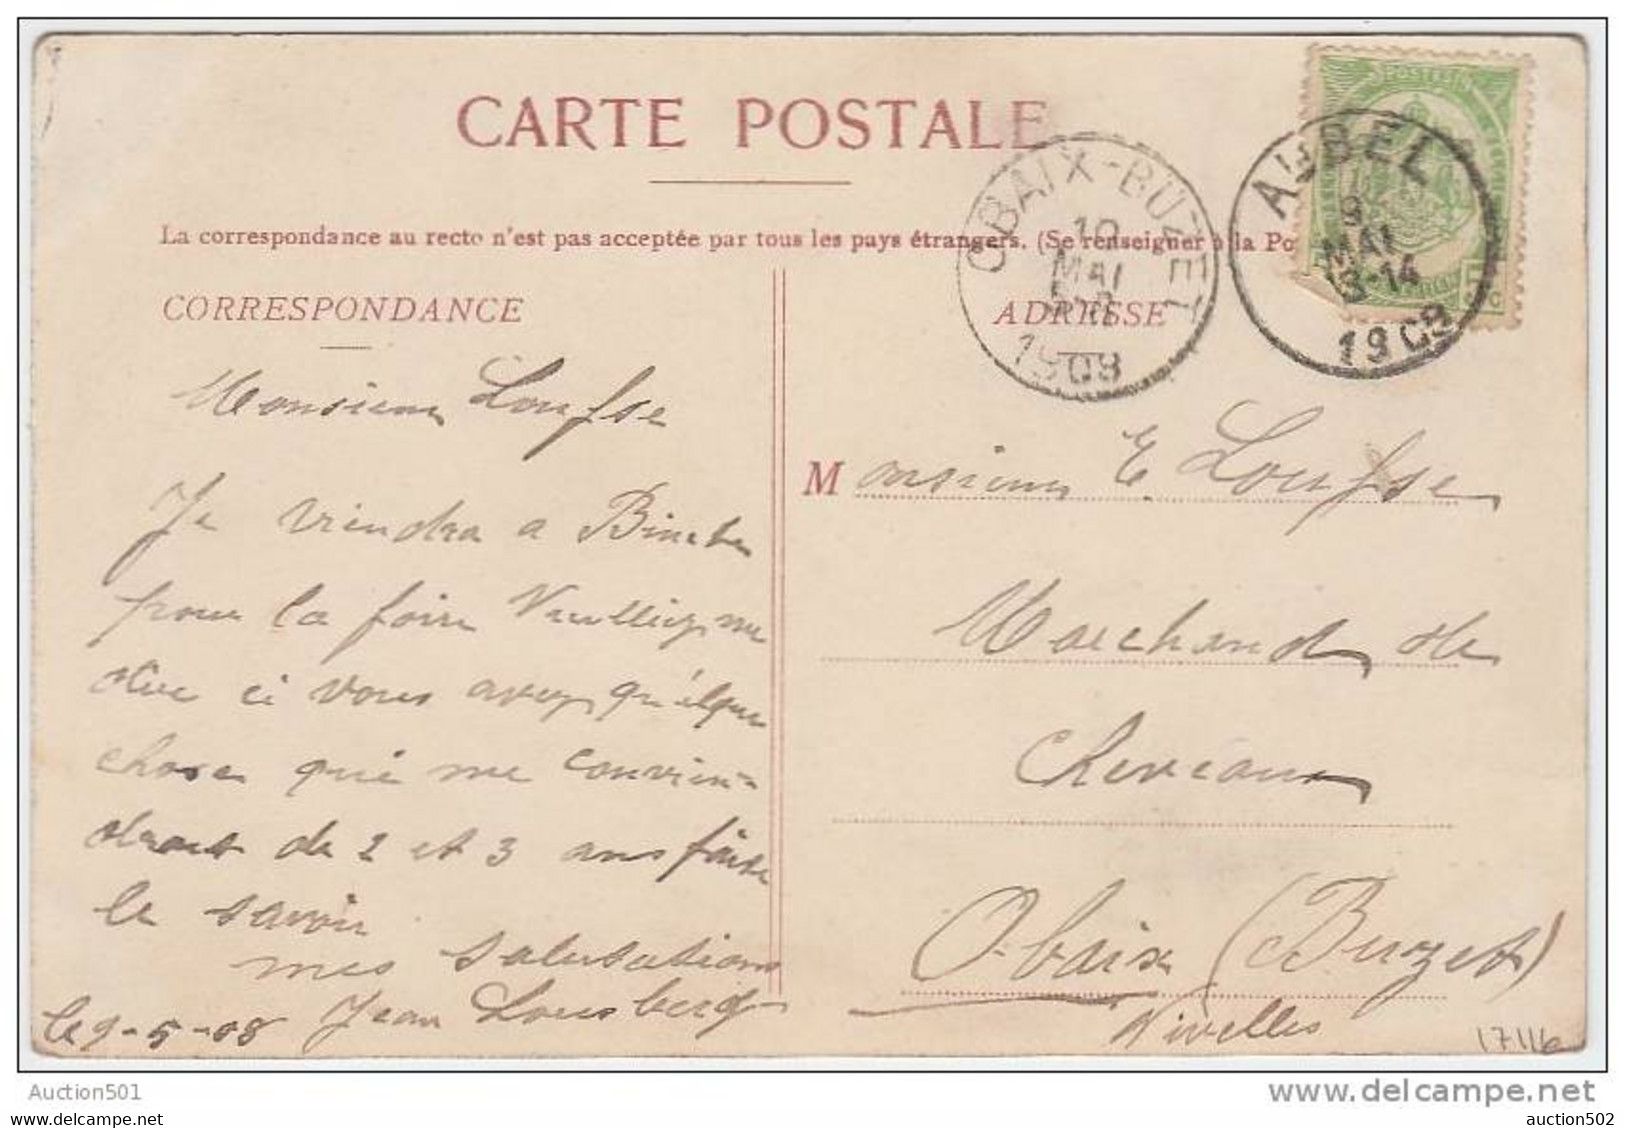 CARTE POSTALE
La correspondance au recto n'est pas acceptée par tous les pays étrangers. (Se renseigner à la Po
CORRESPONDANCE
ADRESSE
OBAIX-BUZET
10
MAI
1908
AUBEL
9
MAI
13-14
1908
Monsieur Loufse
Je viendra a Binche
pour la foire Veulliez me
dire ci vous avez quélque
choses qui me convien-
drait de 2 et 3 ans faire
le savoir
mes salutations
Jean Lousberg
le 9-5-08
Monsieur E. Loufse
Marchand de
Chevaux
Obaix (Buzet)
Nivelles
17116
Auction501
www.delcampe.net
auction502